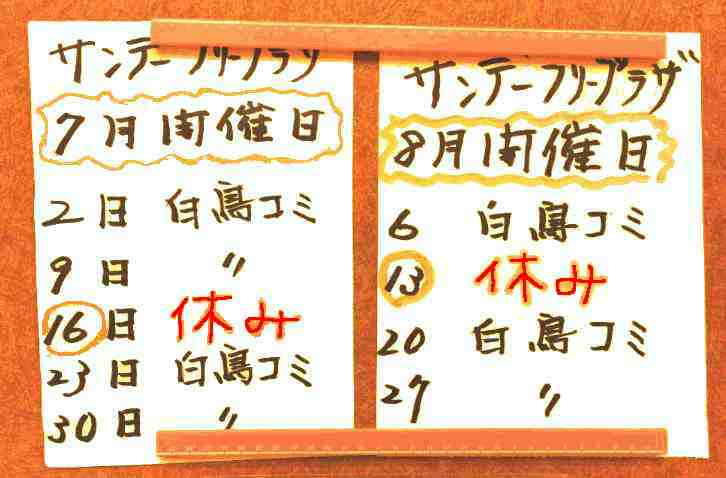 サンデーフリープラザ
7月開催日
2日 白鳥コミ
9日 〃
16日 休み
23日 白鳥コミ
30日 〃
サンデーフリープラザ
8月開催日
6 白鳥コミ
13 休み
20 白鳥コミ
27 〃